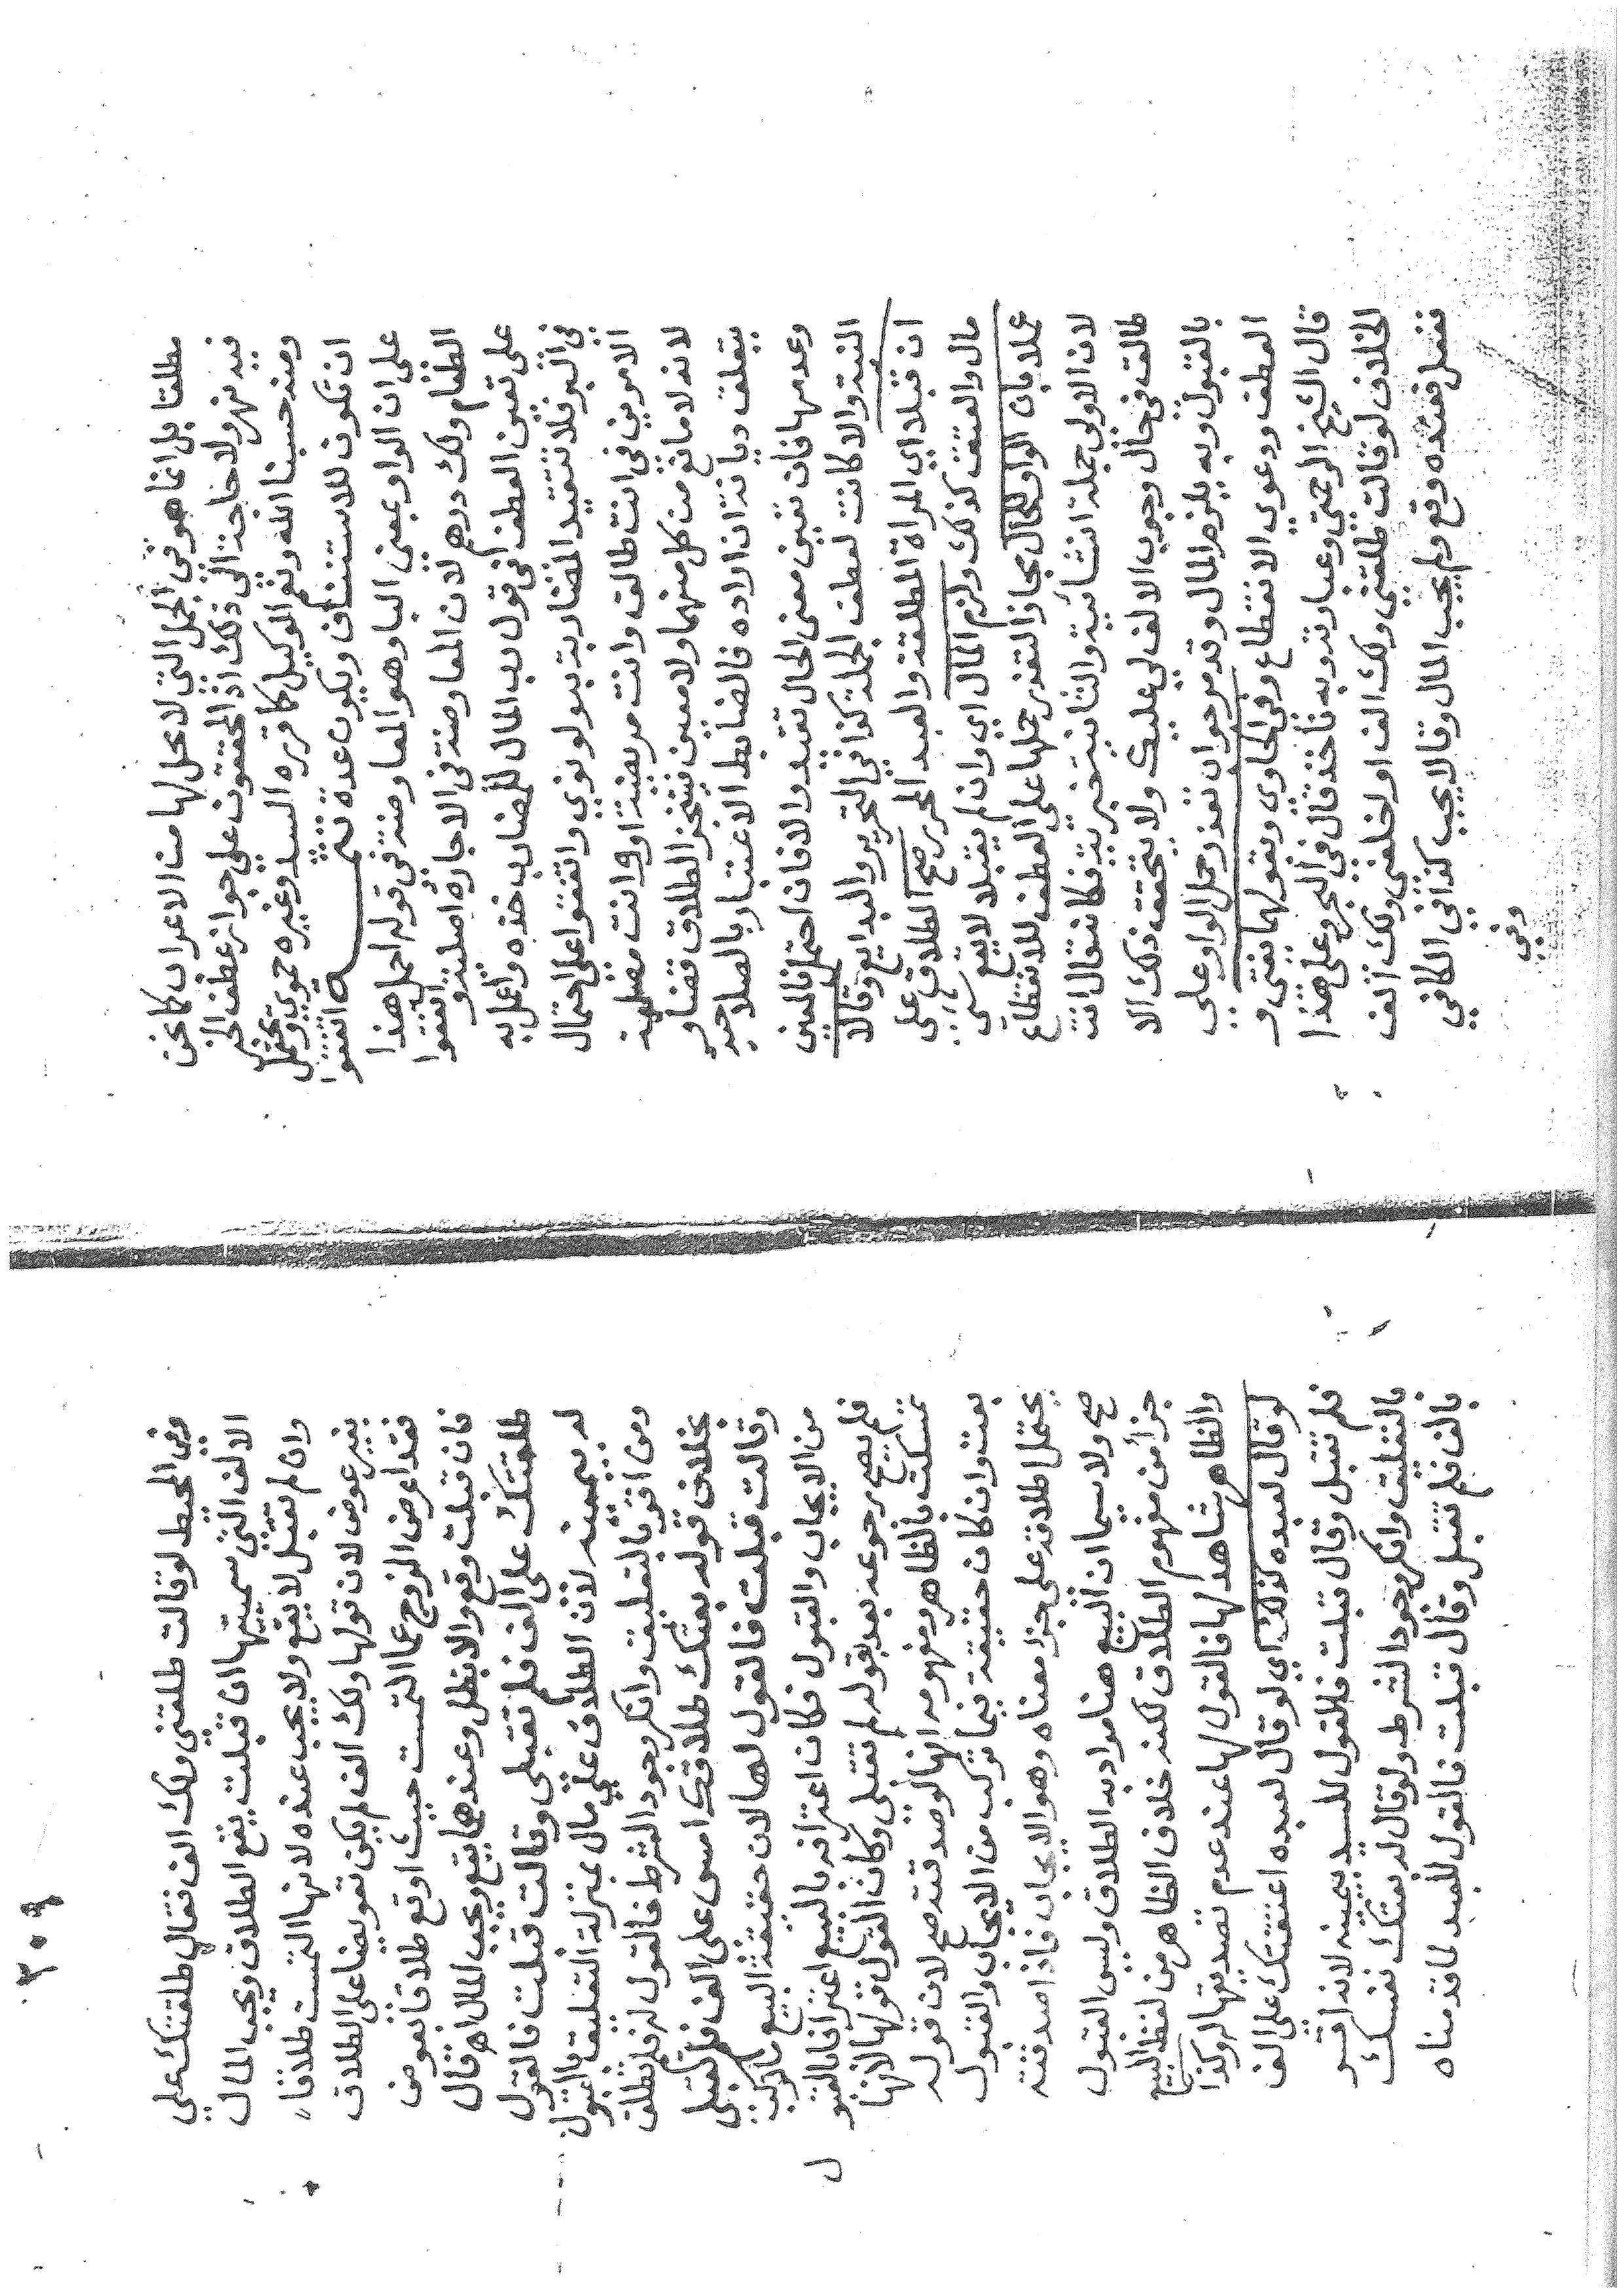 مطلقا بل انما هو في الجمل التي لا محل لها من الاعراب كما نحن
فيه نهر ولا حاجة الى ذلك اذ المحققون على جواز عطف الخبر
ومنه حسبنا الله ونعم الوكيل كما قرره السيد وغيره حموي ويحتمل
ان تكون للاستئناف ويكون عدة تتمة اتفقوا
على ان الواو بمعنى الباء وهو المعاوضة في قوله احمل هذا
الطعام ولك درهم لان المعاوضة في الاجارة اصلية واتفقوا
على تعين العطف في قول رب المال للمضارب خذه واعمل به
في البز فلا تتقيد المضاربة به ولو نوى واتفقوا على احتمال
الامرين في انت طالق وانت مريضة او وانت مصلية
لانه لا مانع من كل منهما ولا معين فيتنجز الطلاق قضاء و
يتعلق ديانة ان اراده فالضابط الاعتبار بالصلاحية
وعدمها فان تعين معنى الحال تقيد والا فان احتمل فالمعين
النية والا كانت لعطف الجملة كذا في التحرير والبدايع وقالا
ان قبلا اي المراة المطلقة والعبد المحرر صح الطلاق على
مال والعتق كذلك ولزم المال اي وان لم يقبلا لا يقع شي
عملا بان الواو للحال مجازا لتعذر حملها على العطف للانقطاع
لان الاولى جملة انشائية والثانية خبرية فكانه قال انت
طالق في حال وجوب الالف لي عليك ولا يتحقق ذلك الا
بالقبول وبه يلزم المال وقد مر جوابه تعذر حمل الواو على
العطف ودعوى الانقطاع وفي الحاوي وبقولهما يفتى و
قال الشيخ الرحمتي وعبارته وبه ناخذ قال في البحر وعلى هذا
الخلاف لو قالت طلقني ولك الف او اخلعني ولك الف
ففعل فعنده وقع ولم يجب المال وقالا يجب كذا في الكافي
وفي
٣٠٩
وفي المحيط لو قالت طلقني ولك الف فقال طلقتك على
الالف التي سميتها ان قبلت يقع الطلاق ويجب المال
وان لم تقبل لا يقع ولا يجب عنده لانها التمست طلاقا
بغير عوض لان قولها ولك الف لم يكن تعويضا على الطلاق
فقد اعرض الزوج عما التمست حيث اوقع طلاقا بعوض
فان قبلت وقع والا بطل وعندهما يقع ويجب المال اه قال
طلقتك على الف فلم تقبلي وقالت قبلت فالقول
له بيمينه لان الطلاق على مال بمنزلة التعليق بالقبول
ومن اقر بالتعليق وانكر وجود الشرط فالقول له فلم تطلق
بخلاف قوله بعتك طلاقك امس على الف فلم تقبلي
وقالت قبلت فالقول لها لان حقيقة البيع ما تركب
من الايجاب والقبول فكان اعترافه بالبيع اعترافا بالقبول
فلم يصح رجوعه بعد بقوله لم تقبلي وكان القول قولها لانها
تمسكت بالظاهر ومفهومه انها لو صدقته صح لان قوله
بعت وان كان حقيقة فيما تركب من الايجاب والقبول
يحتمل اطلاقه على جزء معناه وهو الايجاب فاذا صدقته
صح ولا سيما ان البيع هنا مراد به الطلاق وليس القبول
جزأ من مفهوم الطلاق لكنه خلاف الظاهر من لفظ البيع
والظاهر شاهد لها فالقول لها عند عدم تصديقها له وكذا
لو قال لعبده كذلك اي لو قال لعبده اعتقتك على الف
فلم تقبل وقال قبلت فالقول للسيد بيمينه لانه اقر
بالتعليق وانكر وجود الشرط ولو قال له بعتك نفسك
بالف فلم تقبل وقال قبلت فالقول للعبد لما قدمناه